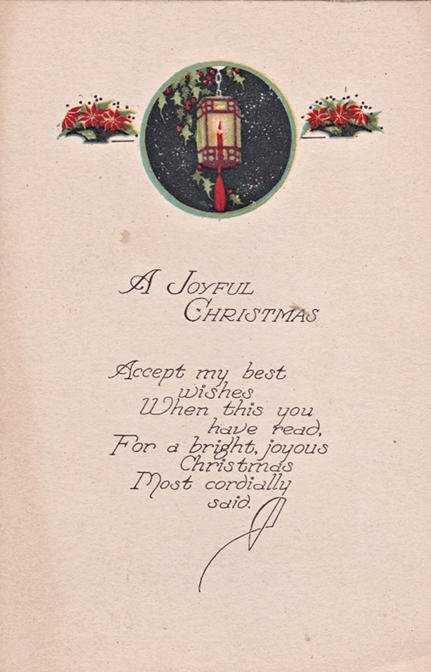 A JOYFUL
CHRISTMAS
Accept my best
wishes
When this you
have read,
For a bright, joyous
Christmas
Most cordially
said.